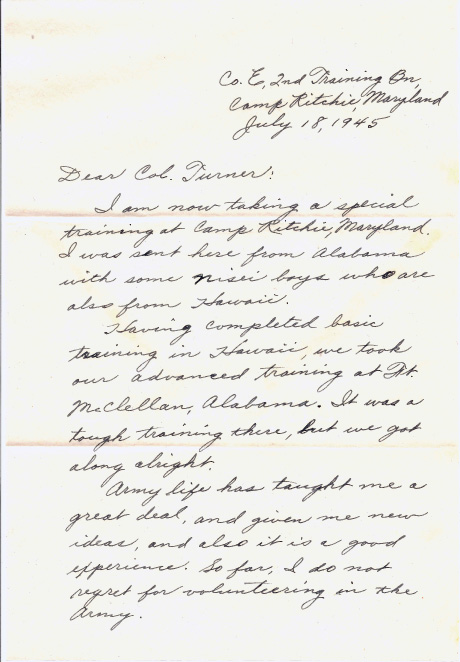 Co. E, 2nd Training Bn,
Camp Ritchie, Maryland
July 18, 1945
Dear Col. Turner:
I am now taking a special
training at Camp Ritchie, Maryland.
I was sent here from Alabama
with some nisei boys who are
also from Hawaii.
Having completed basic
training in Hawaii, we took
our advanced training at Ft.
McClellan, Alabama. It was a
tough training there, but we got
along alright.
Army life has taught me a
great deal, and given me new
ideas, and also it is a good
experience. So far, I do not
regret for volunteering in the
Army.